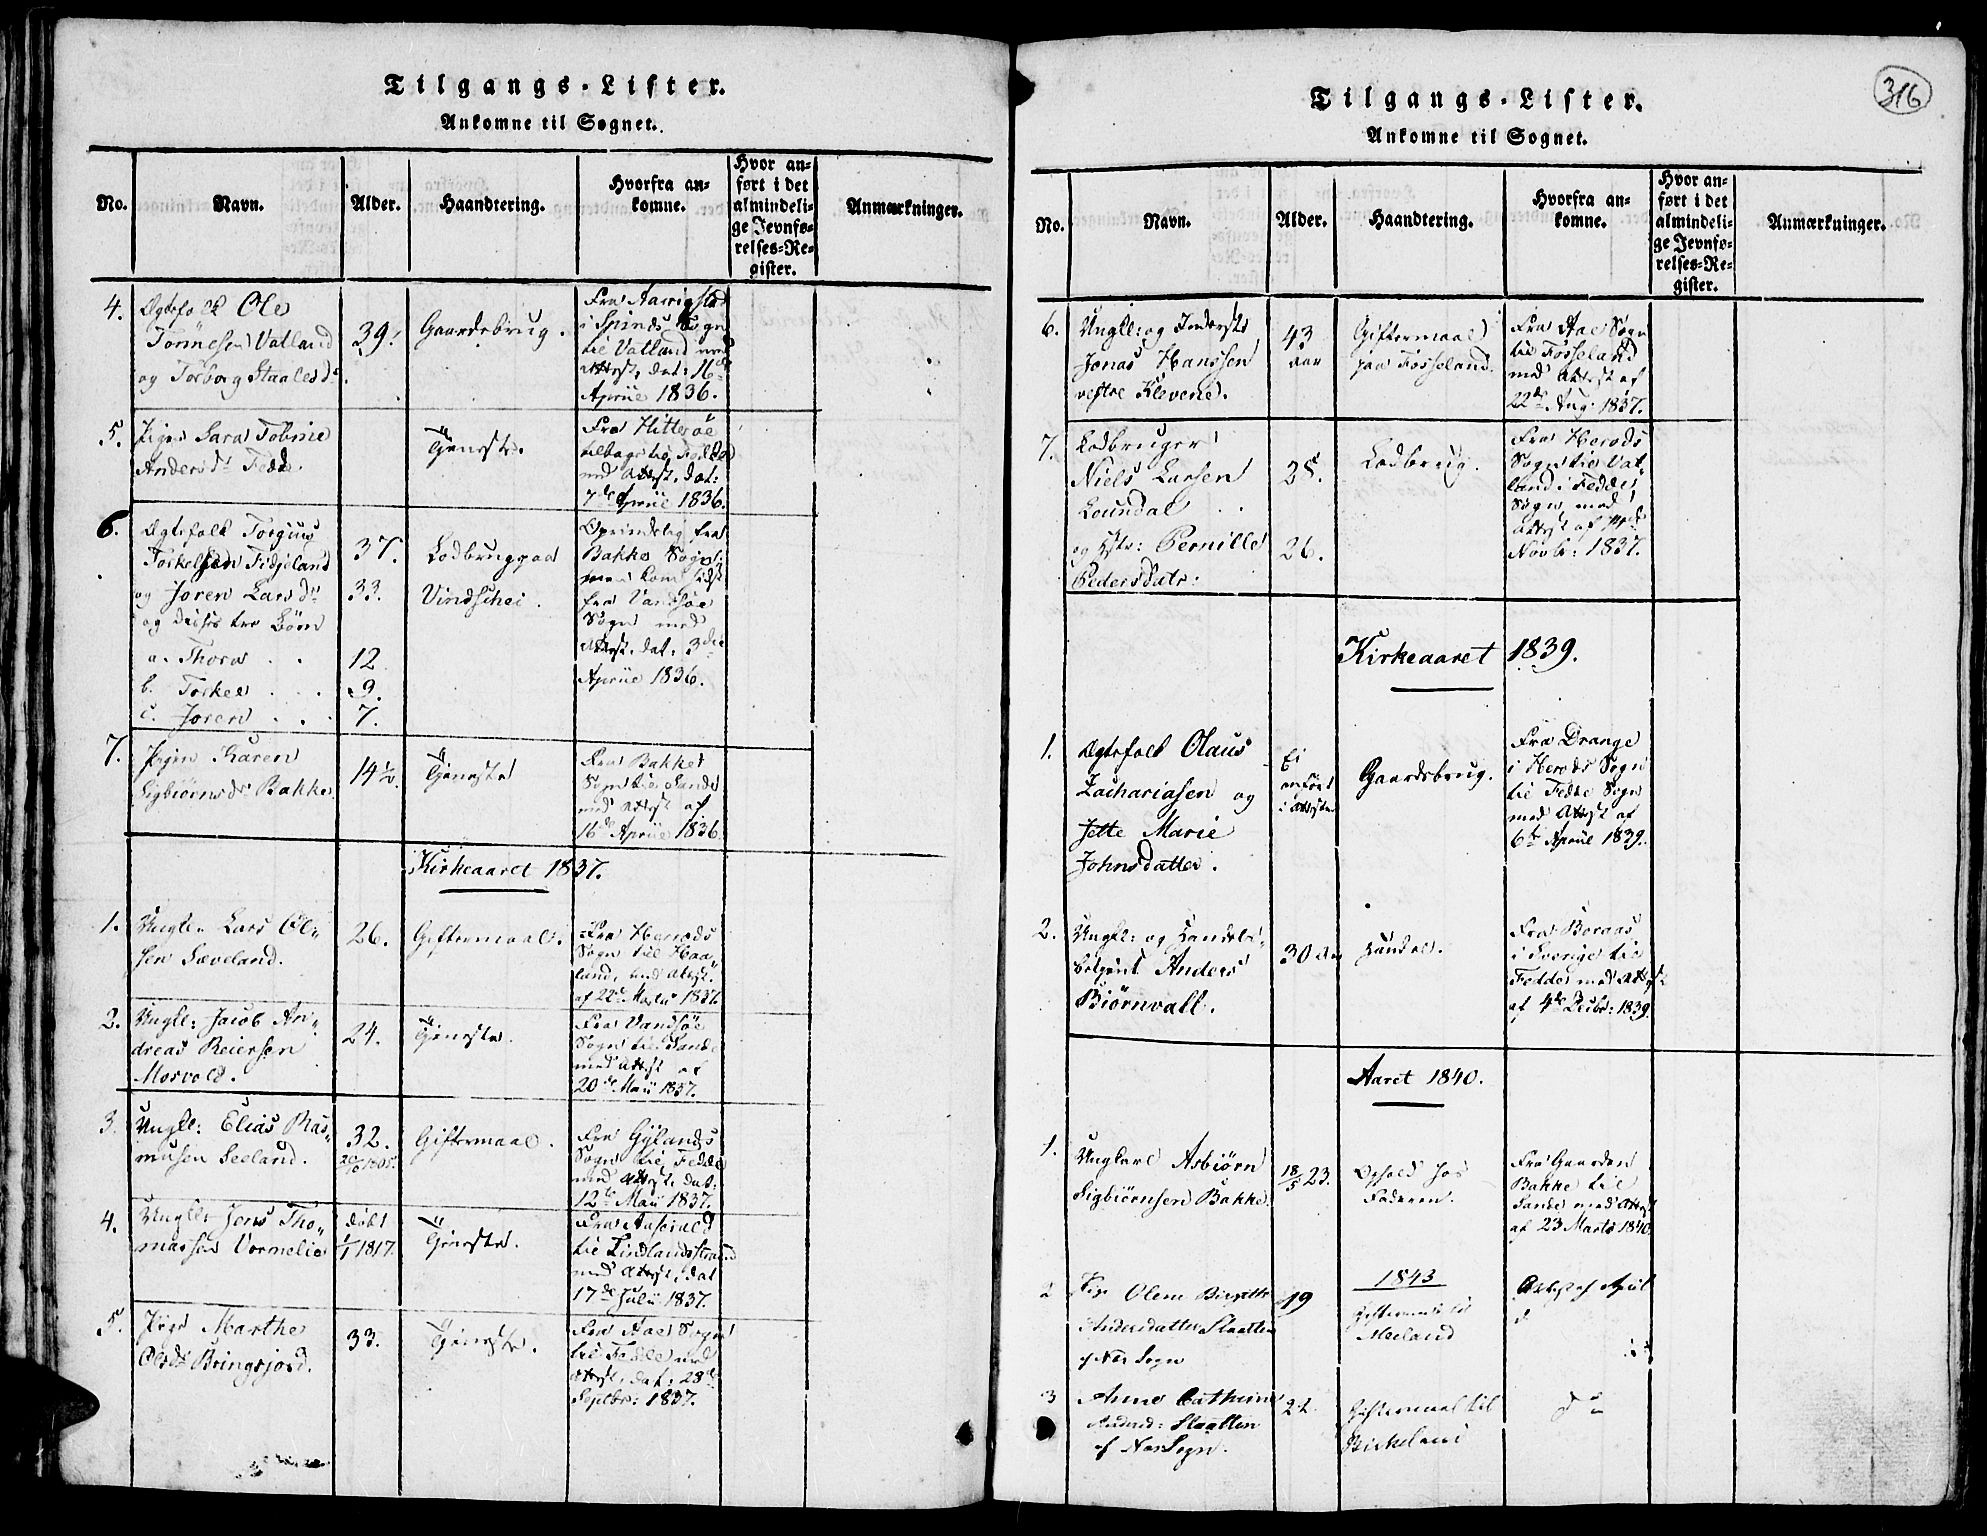 Tilgangs-Lister.
Ankomne til Sognet.
No.
Navn.
Alder.
Haandtering.
Hvorfra an-
komne.
Hvor an-
ført i det
almindeli-
ge Jevnfø-
relses-Re-
gister.
Anmærkninger.
4.
Ole
Tönnesen Vatland
og Torborg Staalesdr.
39.
Gaardsbrug.
i Spinds Sogn
til Vatland med
Attest, dat: 16de
April 1836.
5.
Pigen Sara Tobine
Andersdr Fedde.
Tjeneste.
Fra Hitterøe
tilbage til Fedde
med Attest, dat:
7de April 1836.
6.
Ægtefolk Torgius
Torkelsen Fidjeland
og Joren Larsdr
og deres tre Börn
a. Thora . .
b. Torkel . . .
c. Joren . . .
37.
33.
12
9.
7.
Lodbrug paa
Vindschei.
Oprindelig fra
Bakke Sogn,
men kom sidst
fra Vandsøe
Sogn med
Attest, dat: 3die
April 1836.
7.
Pigen Karen
Sigbiørnsdr Bakke
14½
Tjeneste
Fra Bakke
Sogn til Sande
med Attest af
16de April 1836.
Kirkeaaret 1837.
1.
Ungk. Lars Ol-
sen Sæveland.
26.
Giftermaal.
Fra Herreds
Sogn til Haa-
land, med Attest
af 22de Marts 1837.
2.
Ungk: Jacob An-
dreas Reiersen
Morvold.
24.
Tjeneste.
Fra Vandsøe
Sogn til Sande
med Attest af
20de Maii 1837.
3.
Ungk: Elias Ras-
musen Seeland.
32.
Giftermaal.
Fra Gylands
Sogn til Fedde
med Attest, dat:
12te Maii 1837.
4.
Ungk: Jens Tho-
massen Vormelie
døbt
1/1 1817.
Tjeneste.
til Lindlandsstrand
med Attest, dat
17de Julii 1837.
5.
Pige Marthe
Olsdr Bringsjord.
33.
Tjeneste.
Fra Aae Sogn
til Fedde med
Attest, dat: 28de
Septbr: 1837.
316
Tilgangs-Lister.
Ankomne til Sognet.
No.
Navn.
Alder.
Haandtering.
Hvorfra an-
komne.
Hvor an-
ført i det
almindeli-
ge Jevnfø-
relses-Re-
gister.
Anmærkninger.
6.
Ungk: og Inderste
Jonas Hanssen
vestre Klevene.
43
aar
Giftermaal
paa Fosseland.
Fra Aae Sogn
til Fosseland
med Attest af
22de Aug. 1837.
7.
Lodbruger
Niels Larsen
Loundal
og Hstr: Pernille
Pedersdatr:
28.
26.
Lodbrug.
Fra Herods
Sogn til Vat-
land i Fedde
Sogn med
Attest af
Novbr: 1837.
Kirkeaaret 1839.
1.
Ægtefolk Olaus
Zachariasen og
Jette Marie
Johnsdatter.
Ei
anført
i Attesten
Gaardsbrug.
Fra Drange
i Herods Sogn
til Fedde Sogn
med Attest af
6te April 1839.
2.
Ungk: og Handels-
betjent Anders
Biörnvall.
30 aar
Handel.
Fra Boraas
i Sverige til
Fedde med Attest
af 4de Decbr: 1839.
Aaret 1840.
1.
Ungkarl Asbiørn
Sigbiörnsen Bakke
18/5 23.
Ophold hos
Faderen.
Fra Gaarden
Bakke til
Sande med Attest
af 23 Marts 1840.
1843
2
Pige Olene Birgitte
Andersdatter Slaatten
af Næs Sogn
19
Giftermaal til
Meeland
Attest af April
3
Anne Cathrine
Andersd: Slaatten
af Næs Sogn.
22.
Giftermaal til
Birkeland